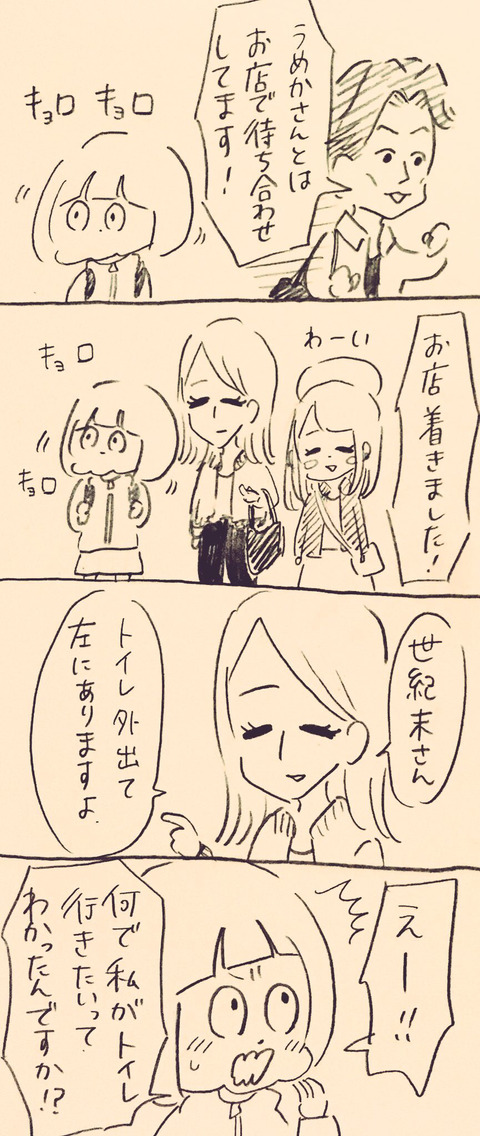 うめかさんとは
お店で待ち合わせ
してます!
キョロ キョロ
お店着きました!
わーい
キョロ
キョロ
世紀末さん
トイレ外出て
左にありますよ.
えー!!
何で私がトイレ
行きたいって
わかったんですか!?